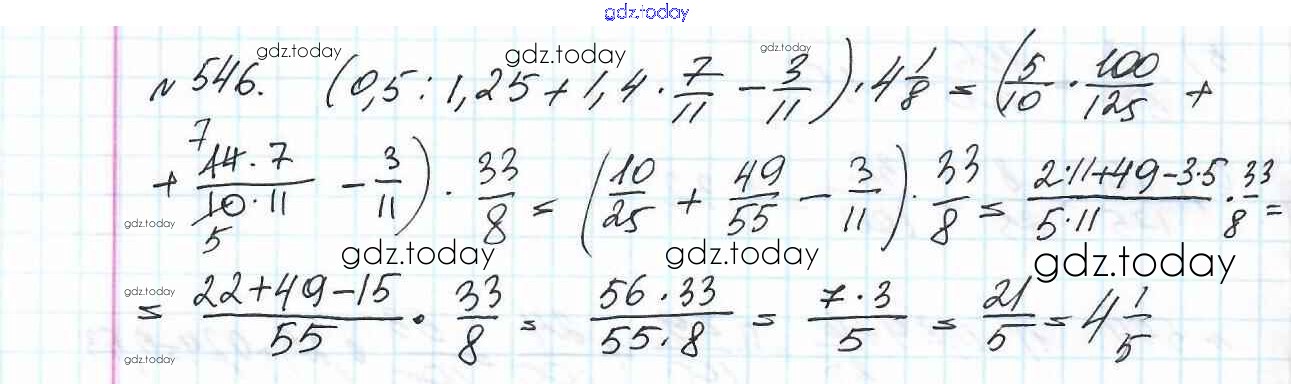 gdz.today
gdz.today gdz.today gdz.today
№ 546. (0,5 : 1,25 + 1,4 · 7/11 − 3/11) · 4 1/8 = (5/10 · 100/125 +
+ (14 · 7)/(10 · 11) 7 5 − 3/11) · 33/8 = (10/25 + 49/55 − 3/11) · 33/8 = (2·11+49−3·5)/(5·11) · 33/8 =
gdz.today gdz.today gdz.today gdz.today
= (22+49−15)/55 · 33/8 = (56 · 33)/(55 · 8) = (7 · 3)/5 = 21/5 = 4 1/5
gdz.today
gdz.today